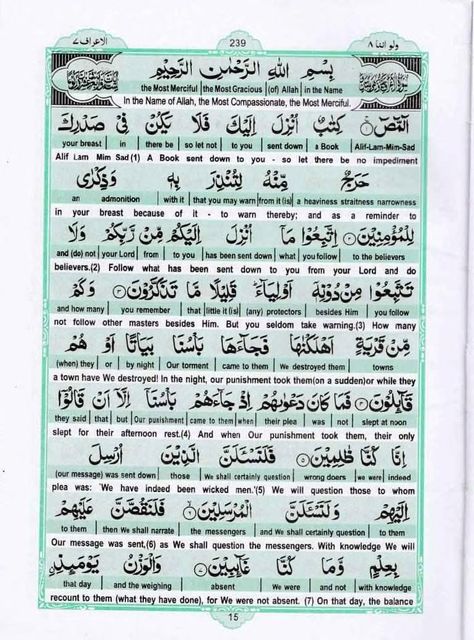 الاعراف ٧ 239 ولو اننا ٨
بِسْمِ اللهِ الرَّحْمٰنِ الرَّحِيْمِ
the Most Merciful the Most Gracious (of) Allah in the Name
In the Name of Allah, the Most Compassionate, the Most Merciful.
الٓمّٓصٓ ۚ كِتٰبٌ اُنْزِلَ اِلَيْكَ فَلَا يَكُنْ فِيْ صَدْرِكَ
your breast in there be so let not to you sent down a Book Alif-Lam-Mim-Sad
Alif Lam Mim Sad (1) A Book sent down to you - so let there be no impediment
حَرَجٌ مِّنْهُ لِتُنْذِرَ بِهٖ وَذِكْرٰى
an admonition with it that you may warn from it (is) a heaviness straitness narrowness
in your breast because of it - to warn thereby; and as a reminder to
لِلْمُؤْمِنِيْنَ ٢ اِتَّبِعُوْا مَآ اُنْزِلَ اِلَيْكُمْ مِّنْ رَّبِّكُمْ وَلَا
and (do) not your Lord from to you has been sent down what you follow to the believers
believers.(2) Follow what has been sent down to you from your Lord and do
تَتَّبِعُوْا مِنْ دُوْنِهٖٓ اَوْلِيَآءَ ۗ قَلِيْلًا مَّا تَذَكَّرُوْنَ ٣ وَكَمْ
and how many you remember that little it (is) (any) protectors besides Him you follow
not follow other masters besides Him. But you seldom take warning.(3) How many
مِّنْ قَرْيَةٍ اَهْلَكْنٰهَا فَجَآءَهَا بَاْسُنَا بَيَاتًا اَوْ هُمْ
(when) they or by night Our torment came to them We destroyed them towns
a town have We destroyed! In the night, our punishment took them(on a sudden)or while they
قَآئِلُوْنَ ٤ فَمَا كَانَ دَعْوٰىهُمْ اِذْ جَآءَهُمْ بَاْسُنَآ اِلَّآ اَنْ قَالُوْٓا
they said that but Our punishment came to them when their plea was not slept at noon
slept for their afternoon rest.(4) And when Our punishment took them, their only
اِنَّا كُنَّا ظٰلِمِيْنَ ٥ فَلَنَسْـَٔلَنَّ الَّذِيْنَ اُرْسِلَ
(our message) was sent down those We shall certainly question wrong doers we were indeed
plea was: 'We have indeed been wicked men.'(5) We will question those to whom
اِلَيْهِمْ وَلَنَسْـَٔلَنَّ الْمُرْسَلِيْنَ ٦ فَلَنَقُصَّنَّ عَلَيْهِمْ
to them then We shall narrate the messengers and We shall certainly question to them
Our message was sent,(6) as We shall question the messengers. With knowledge We will
بِعِلْمٍ وَّمَا كُنَّا غَآئِبِيْنَ ٧ وَالْوَزْنُ يَوْمَئِذِ
that day and the weighing absent We were and not with knowledge
recount to them (what they have done), for We were not absent. (7) On that day, the balance
15